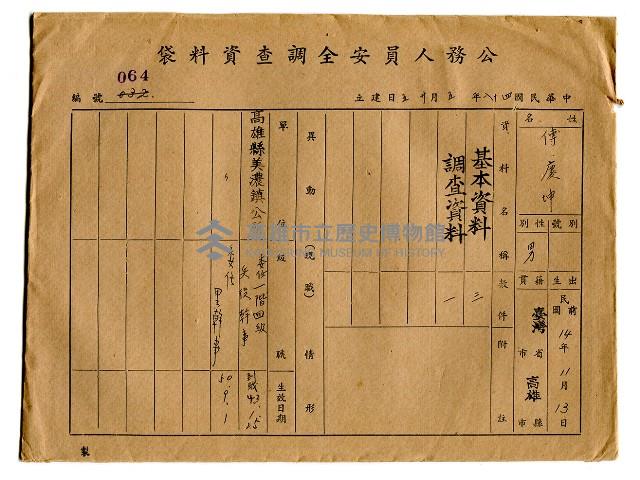 公務人員安全調查資料袋
中華民國四十八年五月廿五日建立
編號
064
姓名
傅慶坤
別號
性別
男
出生
民國前14年11月13日
籍貫
臺灣省高雄縣市
資料名稱
件款
附註
基本資料
三
調查資料
一
異動(現職)情形
單位
級職
生效日期
高雄縣美濃鎮公
委任一階四級
兵役幹事
到職43.1.25
〃
委任
里幹事
50.9.1
高雄市立歷史博物館
KAOHSIUNG MUSEUM OF HISTORY
製